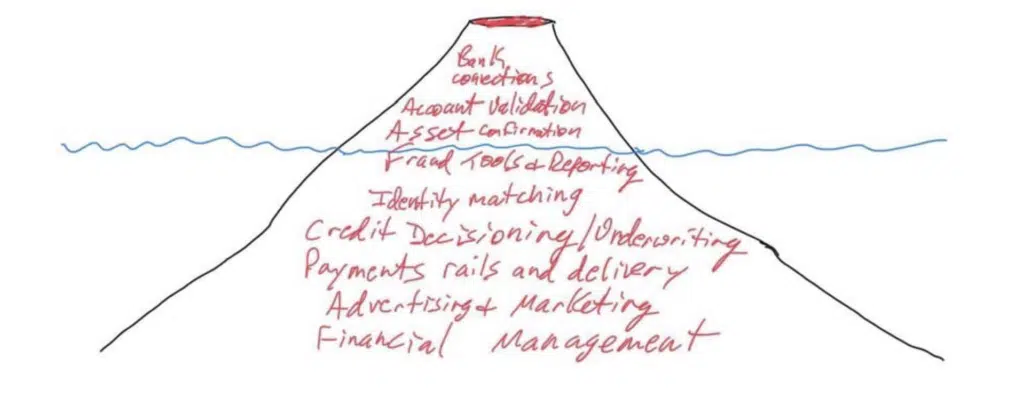 Bank
conections
Account Validation
Asset confirmation
Fraud Tools & Reporting
Identity matching
Credit Decisioning/Underwriting
Payments rails and delivery
Advertising & Marketing
Financial Management